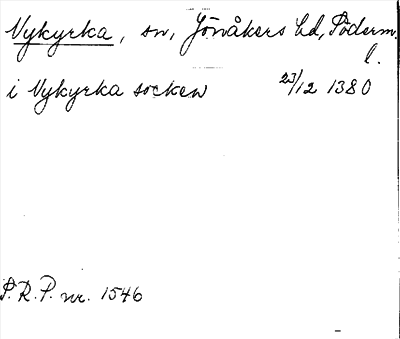 Nykyrka, sn, Jönåkers hd, Söderm.
l.
i Nykyrka socken 23/12 1380
S.R.P. nr. 1546